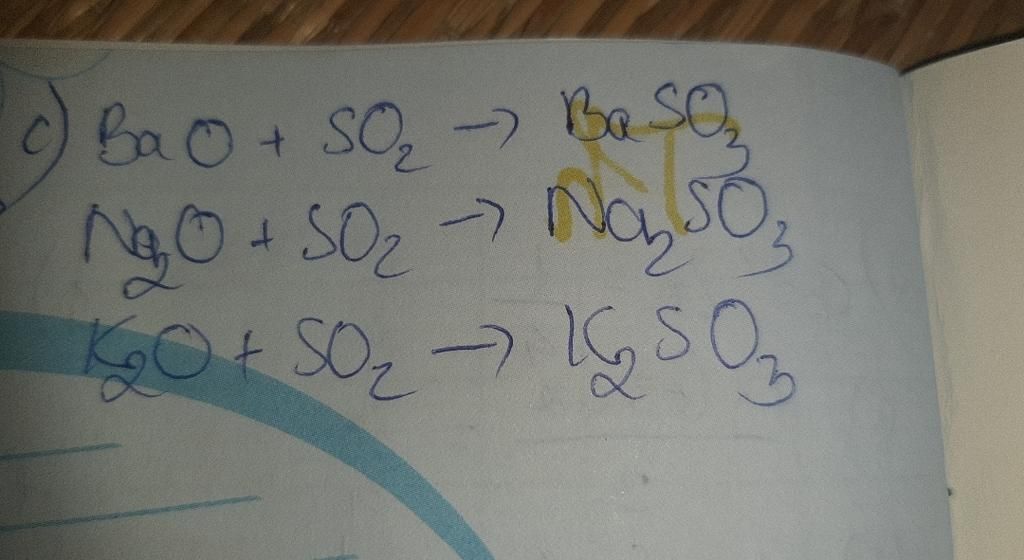 c) BaO + SO₂ → BaSO₃
Na₂O + SO₂ → Na₂SO₃
K₂O + SO₂ → K₂SO₃